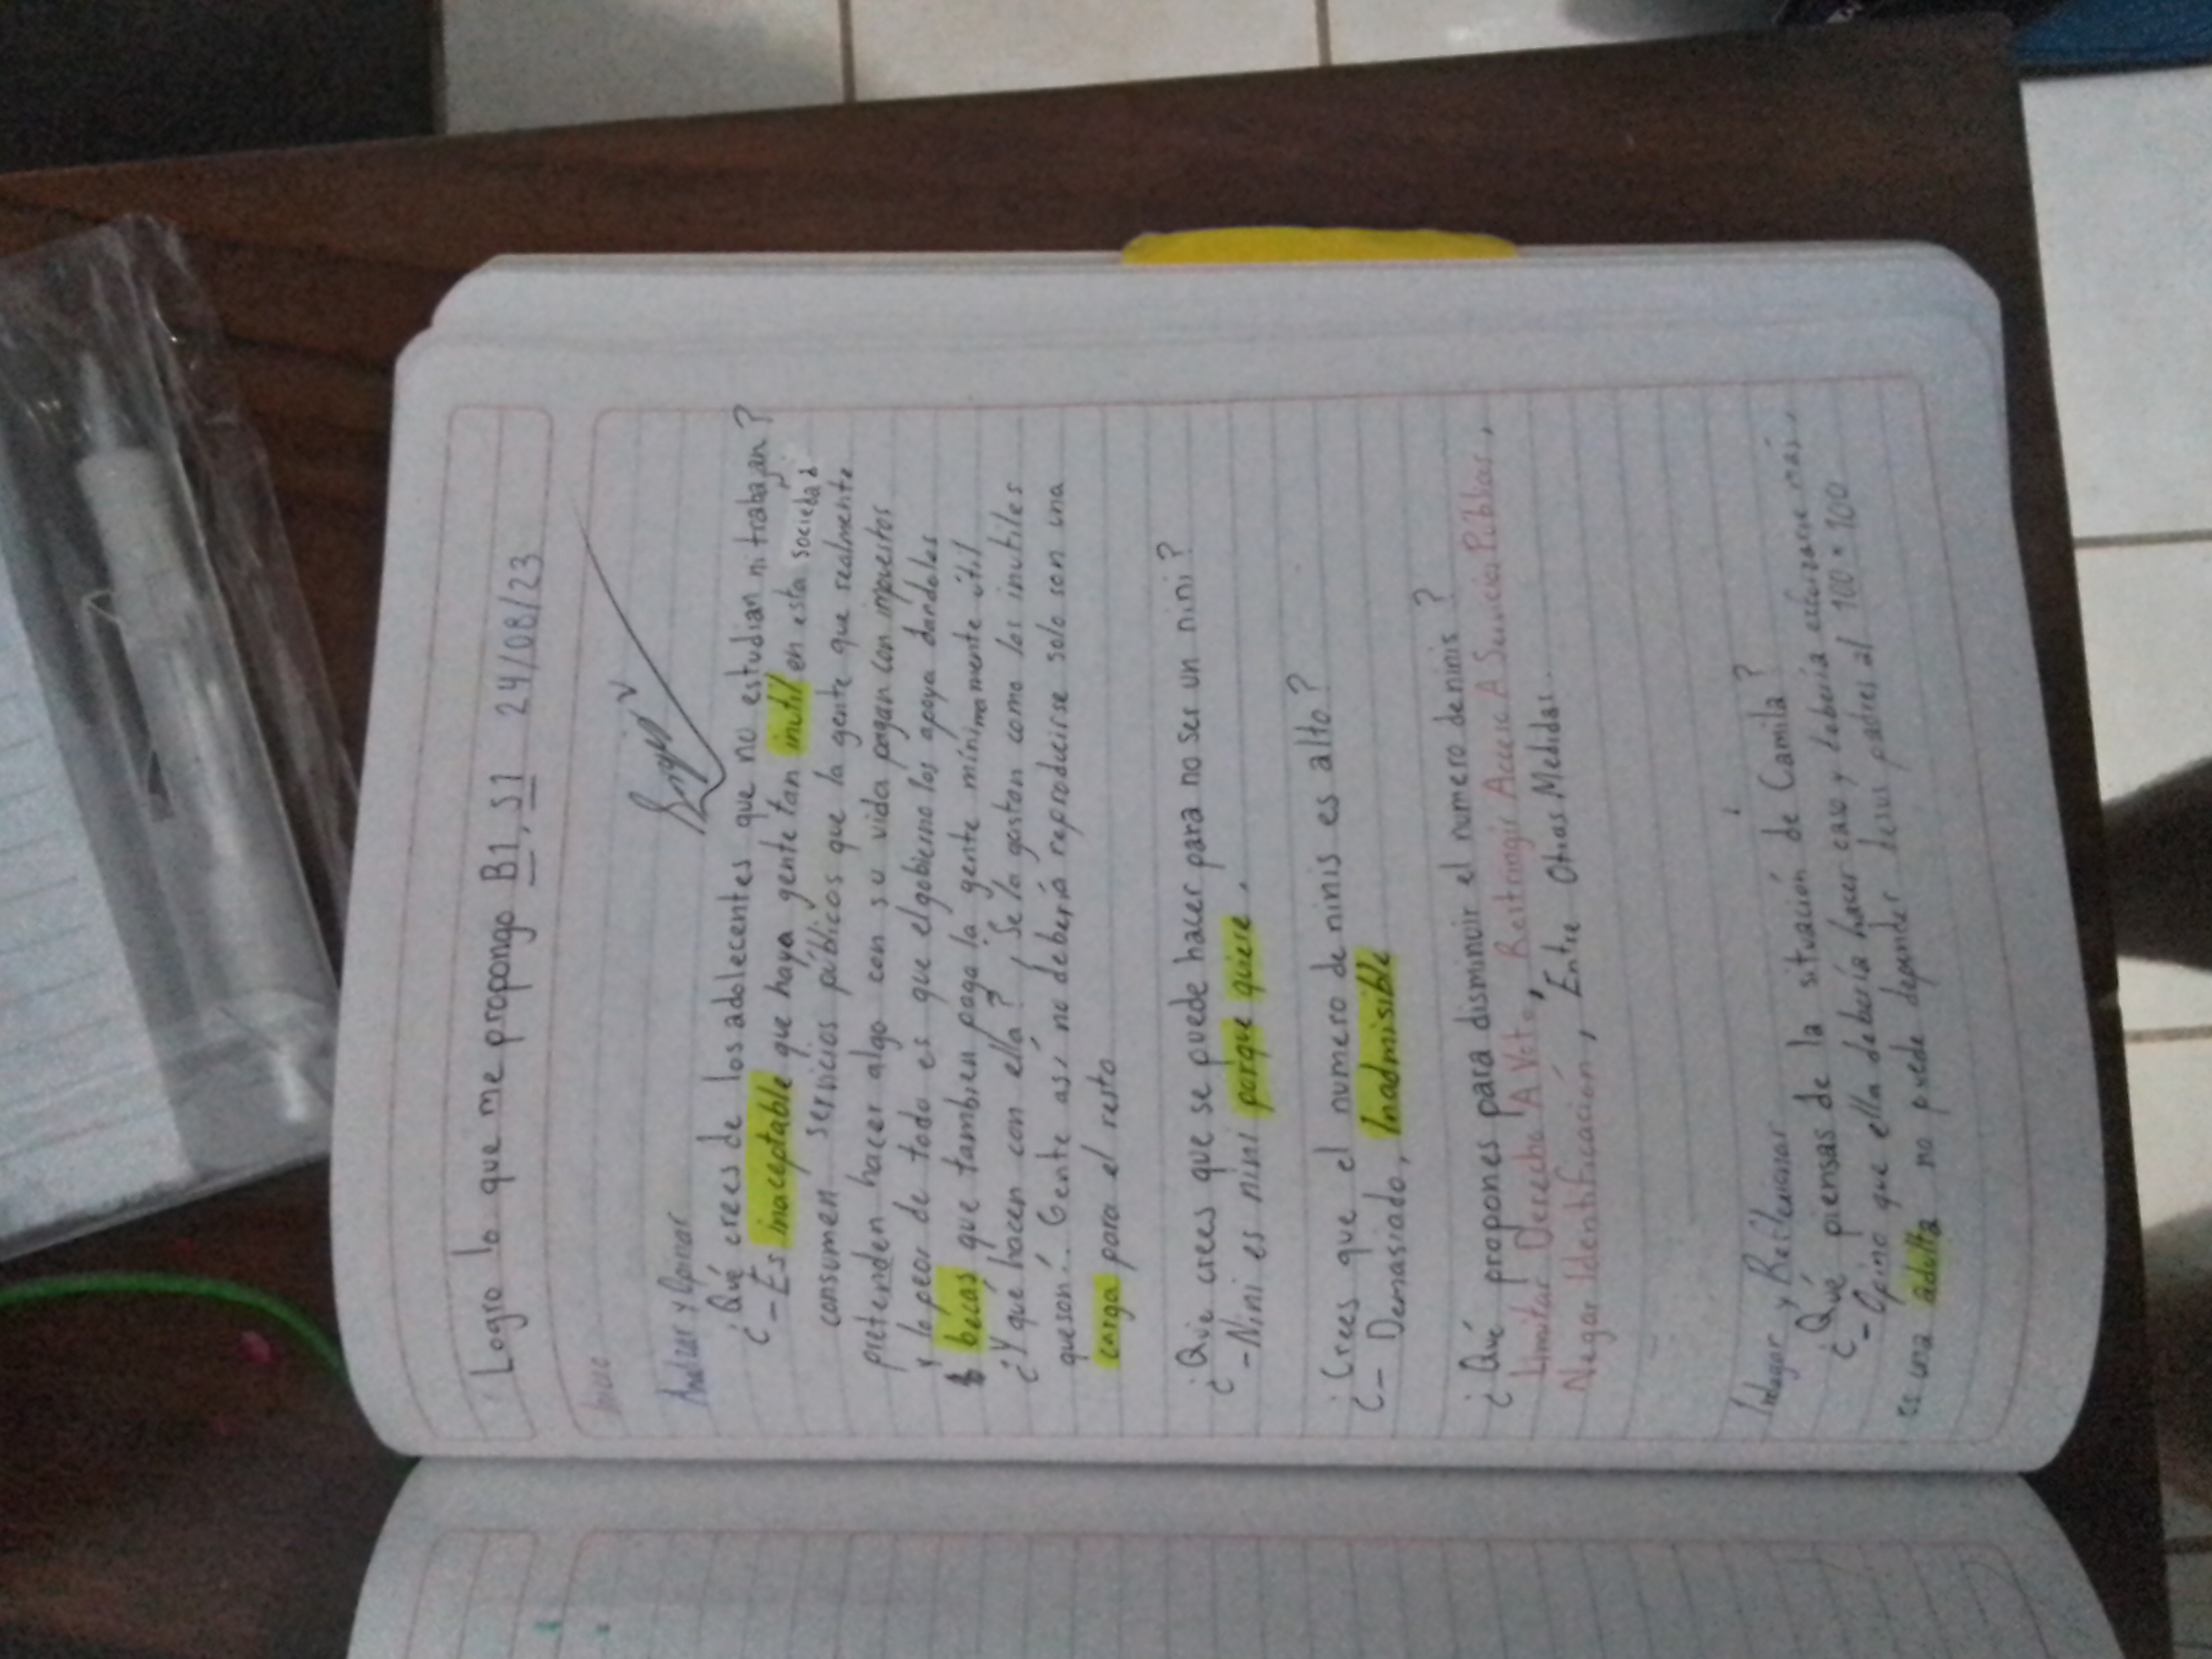 Logro lo que me propongo B1, S1 24/08/23
Inicio
Analizar y Opinar
¿Qué crees de los adolecentes que no estudian ni trabajan?
- Es inaceptable que haya gente tan inutil en esta sociedad
consumen servicios públicos que la gente que realmente
pretenden hacer algo con su vida pagan con impuestos
y lo peor de todo es que el gobierno los apoya dandoles
becas que tambien paga la gente minimamente útil
¿Y qué hacen con ella? Se la gastan como los inutiles
que son. Gente así no debería reproducirse solo son una
carga para el resto
¿Que crees que se puede hacer para no ser un nini?
- Nini es nini porque quiere.
¿Crees que el numero de ninis es alto?
- Demasiado, Inadmisible
¿Qué propones para disminuir el numero de ninis?
Limitar Derecho A Voto, Restringir Acceso A Servicios Públicos,
Negar Identificación, Entre Otras Medidas.
Indagar y Reflexionar
¿Qué piensas de la situación de Camila?
- Opino que ella debería hacer caso y debería esforzarse más,
es una adulta no puede depender de sus padres al 100 * 100